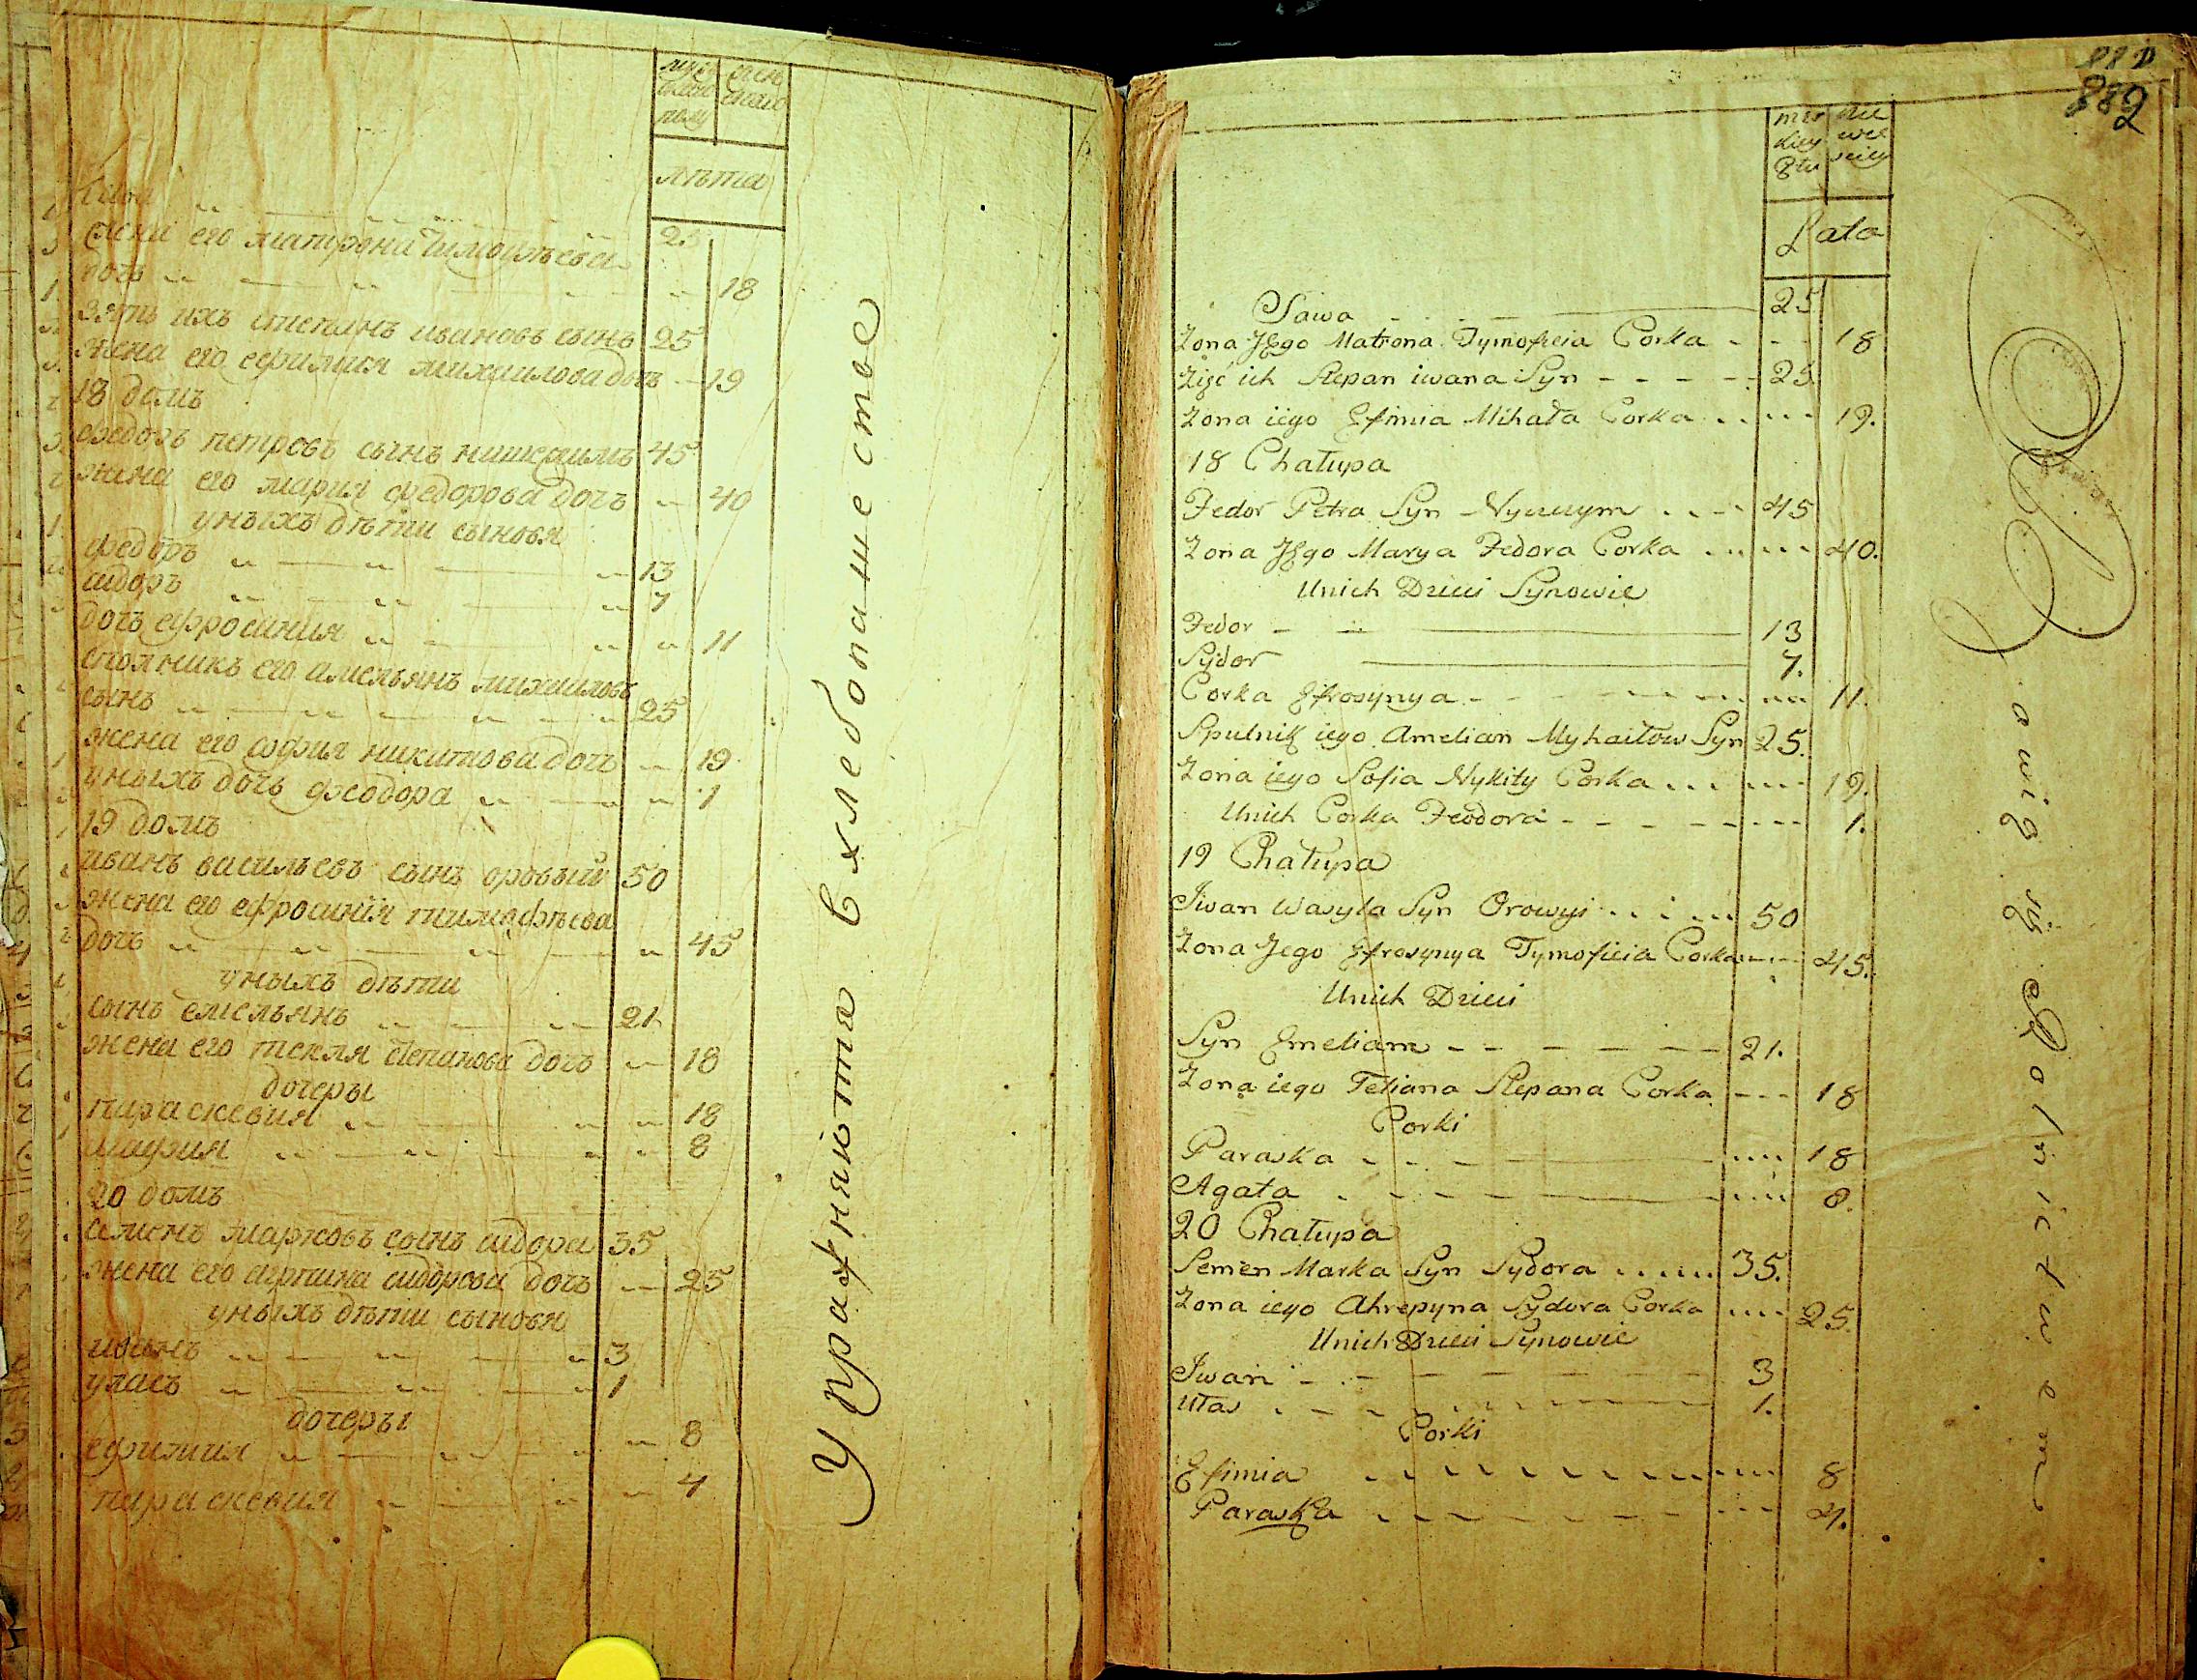 лѣта
25
жена его матрона тимофѣева
дочь 18
зять ихъ степанъ ивановъ сынъ 25
жена его ефимия михаилова дочь 19
18 домъ
федоръ петровъ сынъ 45
жена его мария федорова дочь 40
уныхъ дѣти сыновя
федоръ 13
сидоръ 7
дочь ефросиния 11
его амельянъ михаиловъ
сынъ 25
жена его софия никитова дочь 19
уныхъ дочь феодора 1
19 домъ
иванъ васильевъ сынъ оровый 50
жена его ефросиния тимофѣева
дочь 45
уныхъ дѣти
сынъ емельянъ 21
жена его текля степанова дочь 18
дочеры
параскевия 18
8
20 домъ
семенъ марковъ сынъ сидора 35
жена его сидорова дочь 25
уныхъ дѣти сыновя
иванъ 3
уласъ 1
дочеры
ефимия 8
параскевия 4
Упражняются в хлебопашестве
882
Lata
Sawa 25
Zona Jego Matrona Tymofieia Corka 18
Zięć ich Stepan iwana Syn 25
Zona iego Efimia Mihała Corka 19.
18 Chałupa
Fedor Petra Syn 45
Zona Jego Marya Fedora Corka 40.
Unich Dzieci Synowie
Fedor 13
Sydor 7.
Corka Efrosynya 11.
Spulnik iego Amelian Myhaiłow Syn 25.
Zona iego Sofia Nykity Corka 19.
Unich Corka Feodora 1.
19 Chałupa
Iwan Wasyla Syn Orowyi 50
Zona Jego Efrosynya Tymofieia Corka 45.
Unich Dzieci
Syn Emelian 21.
Zona iego Tetiana Stepana Corka 18
Corki
Paraska 18
Agata 8.
20 Chałupa
Semen Marka Syn Sydora 35.
Zona iego Ahrepyna Sydora Corka 25.
Unich Dzieci Synowie
Iwan 3
Ułas 1.
Corki
Efimia 8
Paraska 4.
Bawią się Rolnictwem.